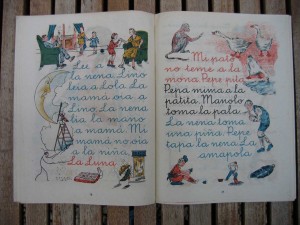 Lee a la
la nena. Lino
leía a Lola. La
mamá oía a
Lino. La nena
lía la mano
a mamá. Mi
mamá no oía
a la niña.
La Luna
Mi pato
no teme a la
mona. Pepe pila
Pepa mima a la
patita. Manolo
toma la pala
La nena toma
una piña. Pepe
tapa la nena. La
amapola.